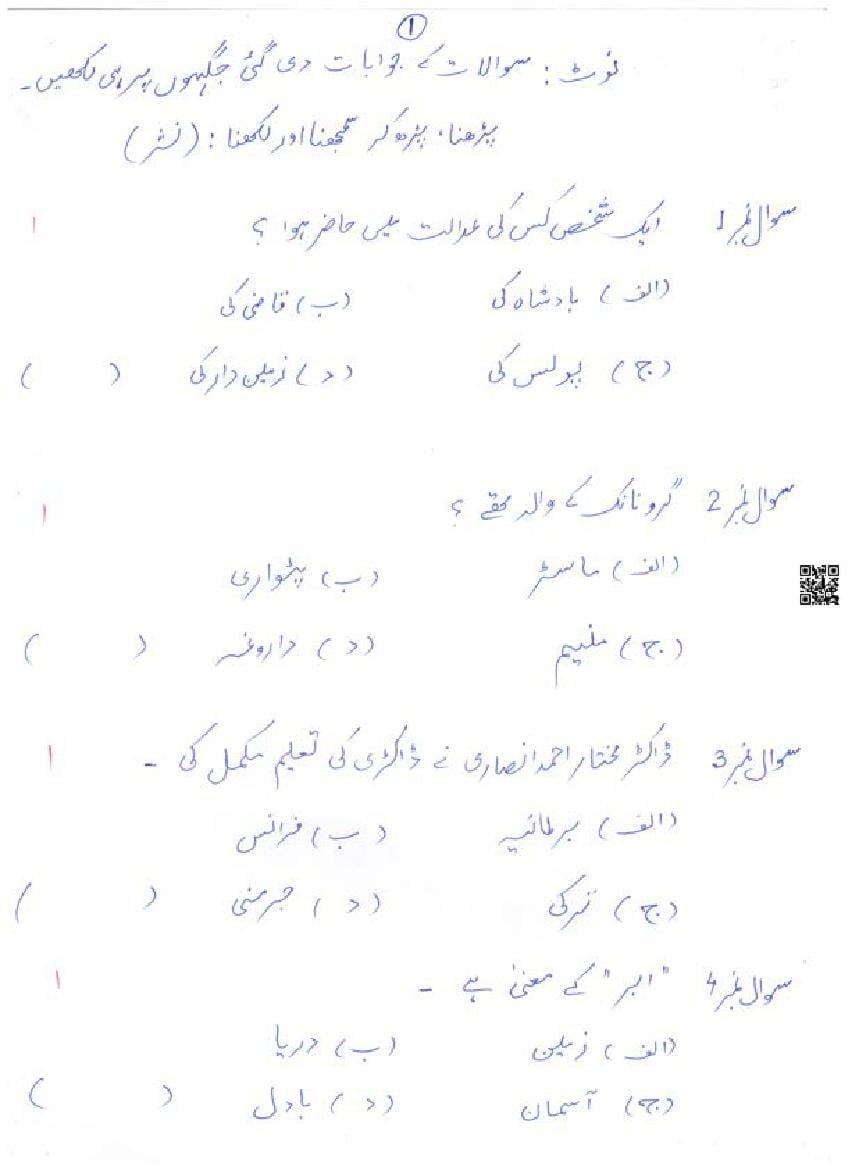 1
نوٹ: سوالات کے جوابات دی گئی جگہوں پر ہی لکھیں۔
پڑھنا، پڑھ کر سمجھنا اور لکھنا: (نثر)
سوال نمبر 1 ایک شخص کس کی عدالت میں حاضر ہوا؟ 1
(الف) بادشاہ کی (ب) قاضی کی
(ج) پولس کی (د) زمین دار کی ( )
سوال نمبر 2 گرونانک کے والد تھے؟ 1
(الف) ماسٹر (ب) پٹواری
(ج) منیم (د) داروغہ ( )
سوال نمبر 3 ڈاکٹر مختار احمد انصاری نے ڈاکٹری کی تعلیم مکمل کی ۔ 1
(الف) برطانیہ (ب) فرانس
(ج) ترکی (د) جرمنی ( )
سوال نمبر 4 "ابر" کے معنیٰ ہے ۔ 1
(الف) زمین (ب) دریا
(ج) آسمان (د) بادل ( )